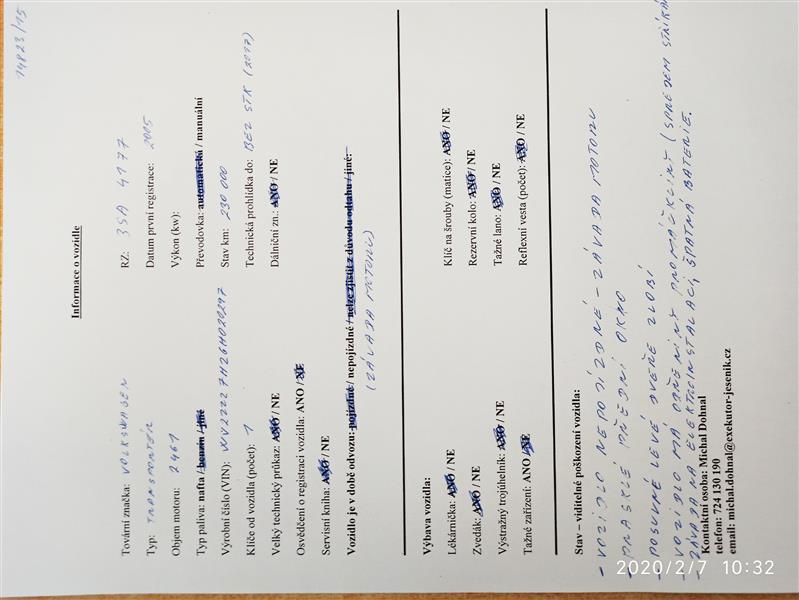 14823/15
Informace o vozidle
Tovární značka: VOLKSWAGEN RZ: 3SA 4177
Typ: TRANSPORTER Datum první registrace: 2005
Objem motoru: 2461 Výkon (kw):
Typ paliva: nafta / benzín / jiné Převodovka: automatická / manuální
Výrobní číslo (VIN): WV2ZZZ7HZ6H020297 Stav km: 230 000
Klíče od vozidla (počet): 1 Technická prohlídka do: BEZ STK (2017)
Velký technický průkaz: ANO / NE Dálniční zn.: ANO / NE
Osvědčení o registraci vozidla: ANO / NE
Servisní kniha: ANO / NE
Vozidlo je v době odvozu: pojízdné / nepojízdné / nelze zjistit z důvodu odtahu / jiné:
(ZÁVADA MOTORU)
Výbava vozidla:
Lékárnička: ANO / NE Klíč na šrouby (matice): ANO / NE
Zvedák: ANO / NE Rezervní kolo: ANO / NE
Výstražný trojúhelník: ANO / NE Tažné lano: ANO / NE
Tažné zařízení: ANO / NE Reflexní vesta (počet): ANO / NE
Stav – viditelné poškození vozidla:
- VOZIDLO NEPOJÍZDNÉ - ZÁVADA MOTORU
- PRASKLÉ PŘEDNÍ OKNO
- POSUVNÉ LEVÉ DVEŘE ZLOBÍ
- VOZIDLO MÁ ODŘENINY PROMÁČKLINY (SPREJEM STŘÍKÁ
- ZÁVADA NA ELEKTROINSTALACI, ŠPATNÁ BATERIE.
Kontaktní osoba: Michal Dohnal
telefon: 724 130 190
email: michal.dohnal@exekutor-jesenik.cz
2020/2/7 10:32